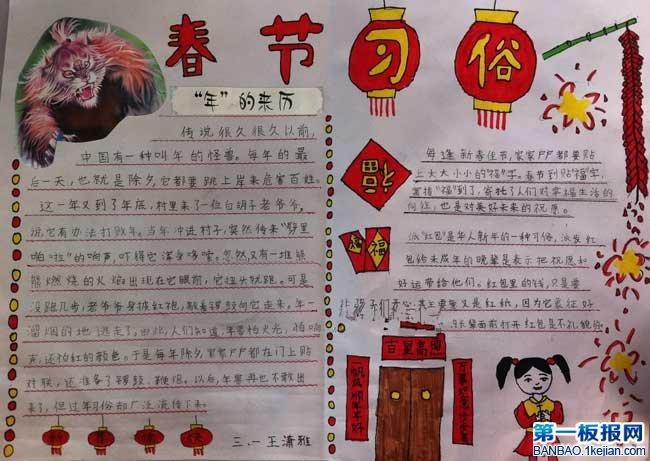 春节习俗
"年"的来历
传说很久很久以前，
中国有一种叫年的怪兽。每年的最
后一天，也就是除夕，它都要跳上岸来危害百姓。
这一年又到了年底，村里来了一位白胡子老爷爷，
说它有办法打败年。当年冲进村子，突然传来"噼里
啪"啦"的响声，吓得它浑身哆嗦。忽然又有一堆熊
熊燃烧的火焰出现在它眼前，它扭头就跑。可是
没跑几步，老爷爷身披红袍，敲着锣鼓向它走来。年一
溜烟的地逃走了。由此，人们知道，年害怕火光，怕响
声，还怕红的颜色。于是每年除夕家家户户都在门上贴
对联，还准备了锣鼓、鞭炮。以后，年兽再也不敢出
来了，但过年习俗却广泛流传下来。
快
三、一王潇雅
每逢新春佳节，家家户户都要贴
上大大小小的"福"字。春节到贴"福"字，
寄托了人们对幸福生活的
向往，也是对美好未来的祝愿。
福
福
派"红包"是华人新年的一种习俗，派发红
包给未成年的晚辈是表示把祝愿和
好运带给他们。红包里的钱，只是要
让孩子们开心，其主要意义是红纸，因为它象征好
面前打开红包是不礼貌的
吉星高照
一帆风顺年年好
万事如意步步高
第一板报网
BANBAO.1kejian.com